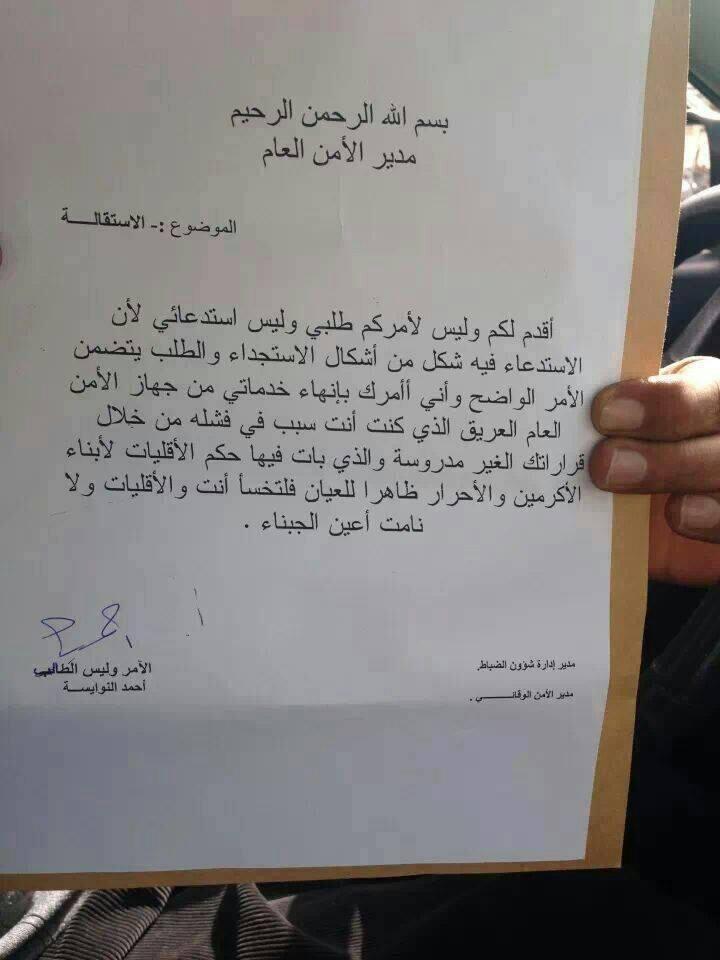 بسم الله الرحمن الرحيم
مدير الأمن العام
الموضوع :- الاستقالــــة
أقدم لكم وليس لأمركم طلبي وليس استدعائي لأن
الاستدعاء فيه شكل من أشكال الاستجداء والطلب يتضمن
الأمر الواضح وأني أأمرك بإنهاء خدماتي من جهاز الأمن
العام العريق الذي كنت أنت سبب في فشله من خلال
قراراتك الغير مدروسة والذي بات فيها حكم الأقليات لأبناء
الأكرمين والأحرار ظاهرا للعيان فلتخسأ أنت والأقليات ولا
نامت أعين الجبناء .
الآمر وليس الطالب
أحمد النوايســة
مدير إدارة شؤون الضباط.
مدير الأمن الوقائـــــي .